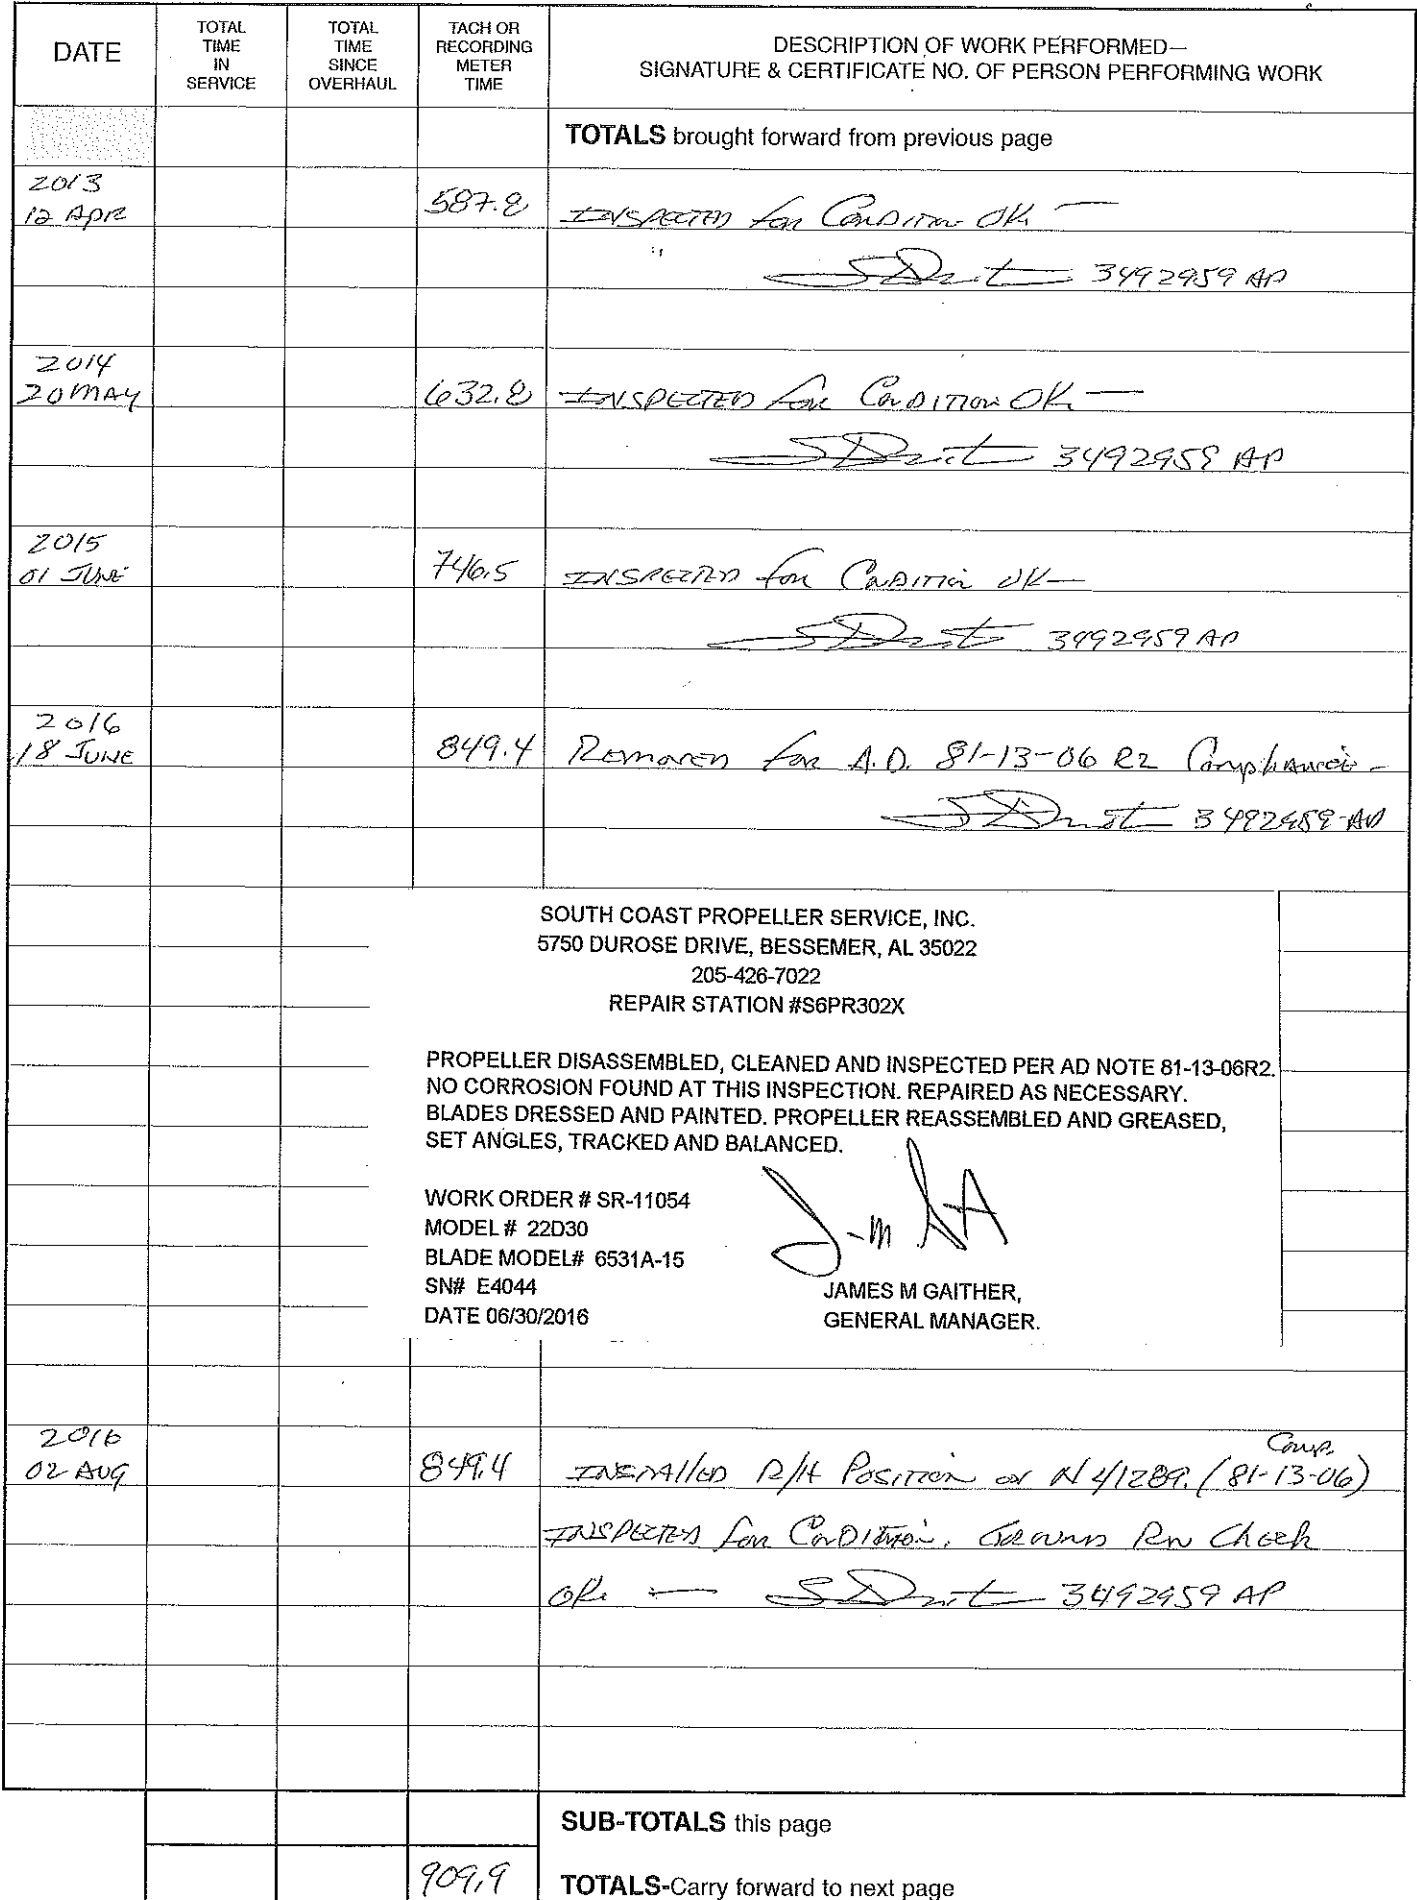 DATE
TOTAL TIME IN SERVICE
TOTAL TIME SINCE OVERHAUL
TACH OR RECORDING METER TIME
DESCRIPTION OF WORK PERFORMED—
SIGNATURE & CERTIFICATE NO. OF PERSON PERFORMING WORK
TOTALS brought forward from previous page
2013
12 APR 587.8 INSPECTED for Condition OK —
3492959 AP
2014
20 MAY 632.8 INSPECTED for Condition OK —
3492959 AP
2015
01 JUNE 746.5 INSPECTED for Condition OK —
3492959 AP
2016
18 JUNE 849.4 Removed for A.D. 81-13-06 R2 Compliance -
3492959 AP
SOUTH COAST PROPELLER SERVICE, INC.
5750 DUROSE DRIVE, BESSEMER, AL 35022
205-426-7022
REPAIR STATION #S6PR302X
PROPELLER DISASSEMBLED, CLEANED AND INSPECTED PER AD NOTE 81-13-06R2.
NO CORROSION FOUND AT THIS INSPECTION. REPAIRED AS NECESSARY.
BLADES DRESSED AND PAINTED. PROPELLER REASSEMBLED AND GREASED,
SET ANGLES, TRACKED AND BALANCED.
WORK ORDER # SR-11054
MODEL # 22D30
BLADE MODEL# 6531A-15
SN# E4044
DATE 06/30/2016
JAMES M GAITHER,
GENERAL MANAGER.
2016
Comp.
02 AUG 849.4 INSTALLED R/H POSITION on N41289. (81-13-06)
INSPECTED for Condition, Ground Run Check
OK — 3492959 AP
SUB-TOTALS this page
909.9 TOTALS-Carry forward to next page